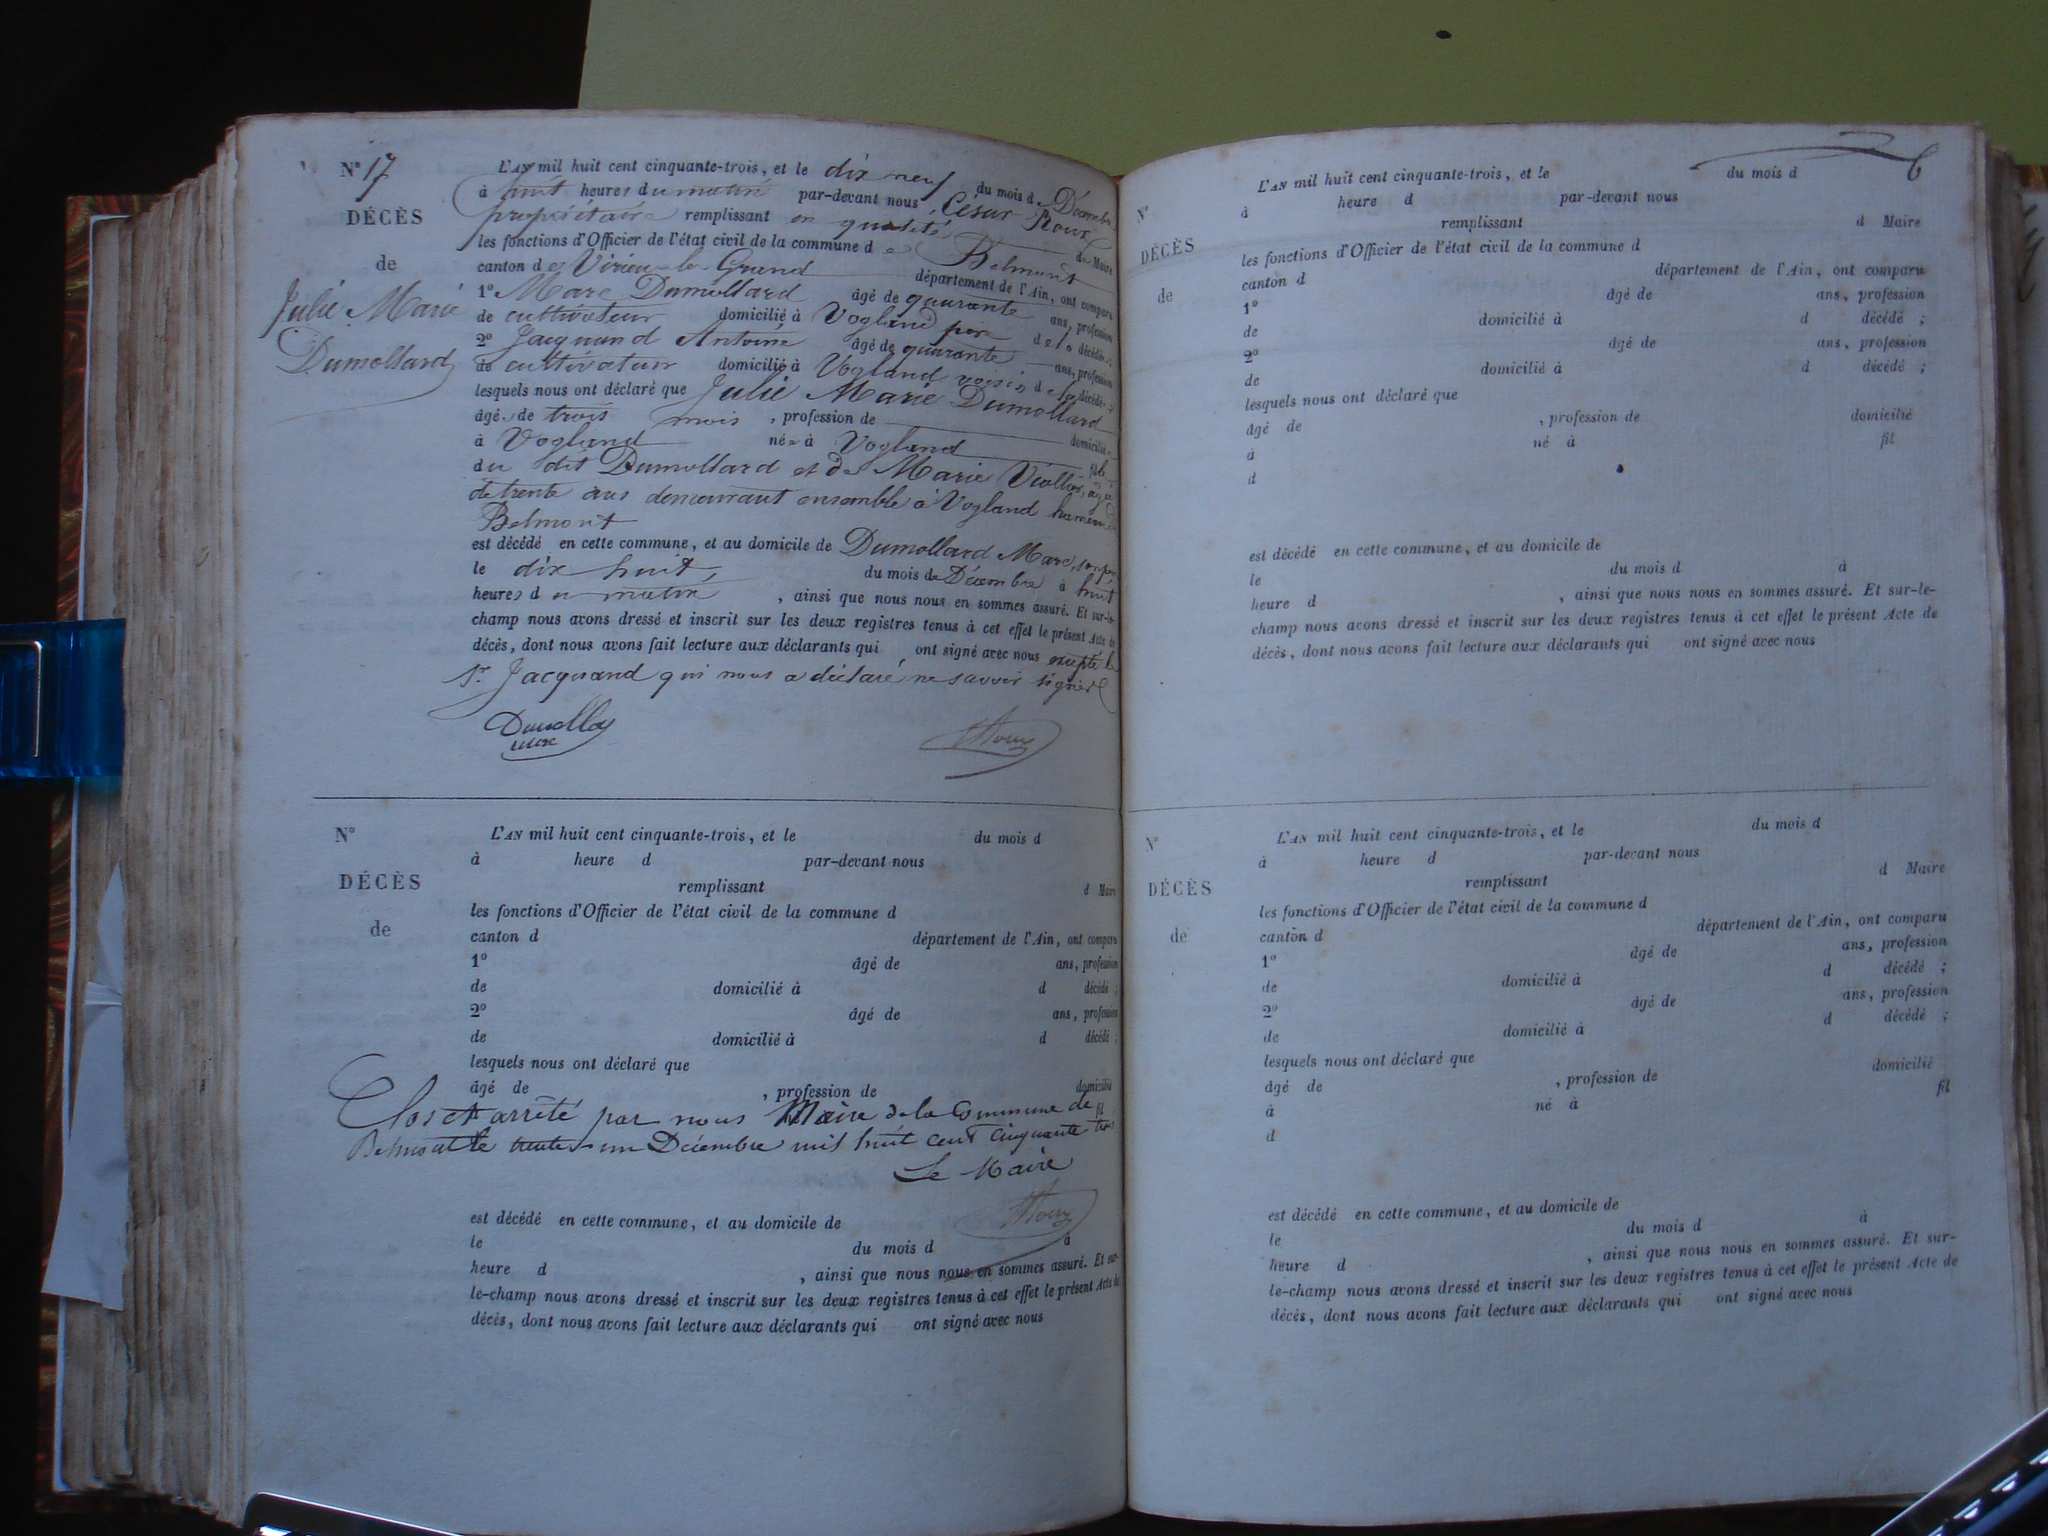 N° 17
DÉCÈS
de
Julie Marie
Dumollard
L'AN mil huit cent cinquante-trois, et le dix neuf du mois de Décembre
à huit heures du matin par-devant nous César Roux
propriétaire remplissant en qualité de Maire
les fonctions d'Officier de l'état civil de la commune de Belmont
canton de Virieu-le-Grand département de l'Ain, ont comparu
1° Marc Dumollard âgé de quarante ans, profession
de cultivateur domicilié à Vogland père de la décédée ;
2° Jacquand Antoine âgé de quarante ans, profession
de cultivateur domicilié à Vogland voisin de la décédée ;
lesquels nous ont déclaré que Julie Marie Dumollard
âgé de trois mois , profession de domicilié
à Vogland née à Vogland fille
du dit Dumollard et de Marie âgée
de trente ans demeurant ensemble à Vogland hameau de
Belmont
est décédé en cette commune, et au domicile de Dumollard Marc, son père
le dix huit, du mois de Décembre à huit
heures du matin , ainsi que nous nous en sommes assuré. Et sur-le-
champ nous avons dressé et inscrit sur les deux registres tenus à cet effet le présent Acte de
décès, dont nous avons fait lecture aux déclarants qui ont signé avec nous excepté le
sr Jacquand qui nous a déclaré ne savoir signer
Dumollard
Roux
N°
DÉCÈS
de
L'AN mil huit cent cinquante-trois, et le du mois d
à heure d par-devant nous
remplissant d Maire
les fonctions d'Officier de l'état civil de la commune d
canton d département de l'Ain, ont comparu
1° âgé de ans, profession
de domicilié à d décédé ;
2° âgé de ans, profession
de domicilié à d décédé ;
lesquels nous ont déclaré que
âgé de , profession de domicilié
fil
Clos et arrêté par nous Maire de la Commune de
Belmont le trente-un Décembre mil huit cent cinquante trois
Le Maire
Roux
est décédé en cette commune, et au domicile de
le du mois d à
heure d , ainsi que nous nous en sommes assuré. Et sur-
le-champ nous avons dressé et inscrit sur les deux registres tenus à cet effet le présent Acte de
décès, dont nous avons fait lecture aux déclarants qui ont signé avec nous
6
N°
DÉCÈS
de
L'AN mil huit cent cinquante-trois, et le du mois d
à heure d par-devant nous
remplissant d Maire
les fonctions d'Officier de l'état civil de la commune d
canton d département de l'Ain, ont comparu
1° âgé de ans, profession
de domicilié à d décédé ;
2° âgé de ans, profession
de domicilié à d décédé ;
lesquels nous ont déclaré que
âgé de , profession de domicilié
à né à fil
d
est décédé en cette commune, et au domicile de
le du mois d à
heure d , ainsi que nous nous en sommes assuré. Et sur-le-
champ nous avons dressé et inscrit sur les deux registres tenus à cet effet le présent Acte de
décès, dont nous avons fait lecture aux déclarants qui ont signé avec nous
N°
DÉCÈS
de
L'AN mil huit cent cinquante-trois, et le du mois d
à heure d par-devant nous
remplissant d Maire
les fonctions d'Officier de l'état civil de la commune d
canton d département de l'Ain, ont comparu
1° âgé de ans, profession
de domicilié à d décédé ;
2° âgé de ans, profession
de domicilié à d décédé ;
lesquels nous ont déclaré que
âgé de , profession de domicilié
à né à fil
d
est décédé en cette commune, et au domicile de
le du mois d à
heure d , ainsi que nous nous en sommes assuré. Et sur-
le-champ nous avons dressé et inscrit sur les deux registres tenus à cet effet le présent Acte de
décès, dont nous avons fait lecture aux déclarants qui ont signé avec nous